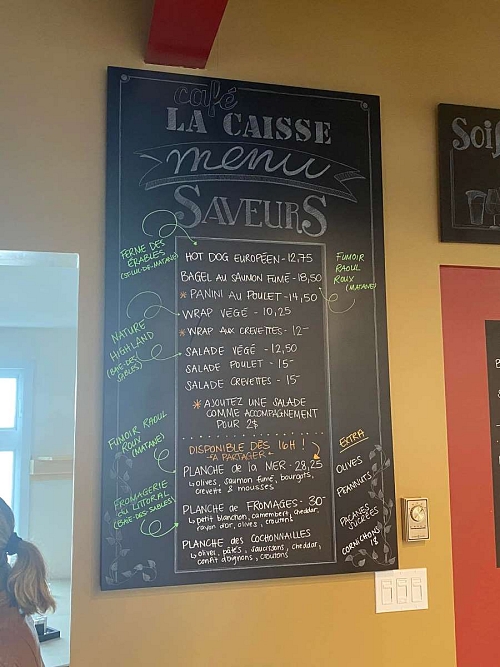 café
LA CAISSE
menu
SAVEURS
FERME DES
ÉRABLES
(ST-LUC-DE-MATANE)
HOT DOG EUROPÉEN - 12,75
BAGEL AU SAUMON FUMÉ - 18,50
* PANINI AU POULET - 14,50
WRAP VÉGÉ - 10,25
* WRAP AUX CREVETTES - 12-
SALADE VÉGÉ - 12,50
SALADE POULET - 15-
SALADE CREVETTES - 15-
* AJOUTEZ UNE SALADE
COMME ACCOMPAGNEMENT
POUR 2$
FUMOIR
RAOUL
ROUX
(MATANE)
NATURE
HIGHLAND
(BAIE-DES-
SABLES)
DISPONIBLE DÈS 16H !
À PARTAGER
PLANCHE de la MER - 28,25
olives, saumon fumé, bourgots,
crevette & mousses
PLANCHE de FROMAGES - 30-
petit blanchon, camembert, cheddar,
rayon d'or, olives, croutons
PLANCHE des COCHONNAILLES
olives, pâtés, saucissons, cheddar,
confit d'oignons, croutons
FUMOIR RAOUL
ROUX
(MATANE)
FROMAGERIE
DU LITTORAL
(BAIE-DES SABLES)
EXTRA
OLIVES
PEANNUTS
PACANES
SUCRÉES
CORNICHONS
Soif